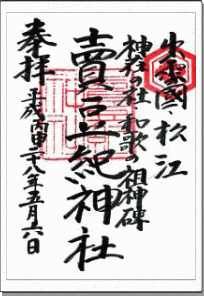 出雲國 松江
神在の社 和歌の祖神碑
賣豆紀神社
奉拝
平成丙申二十八年五月六日